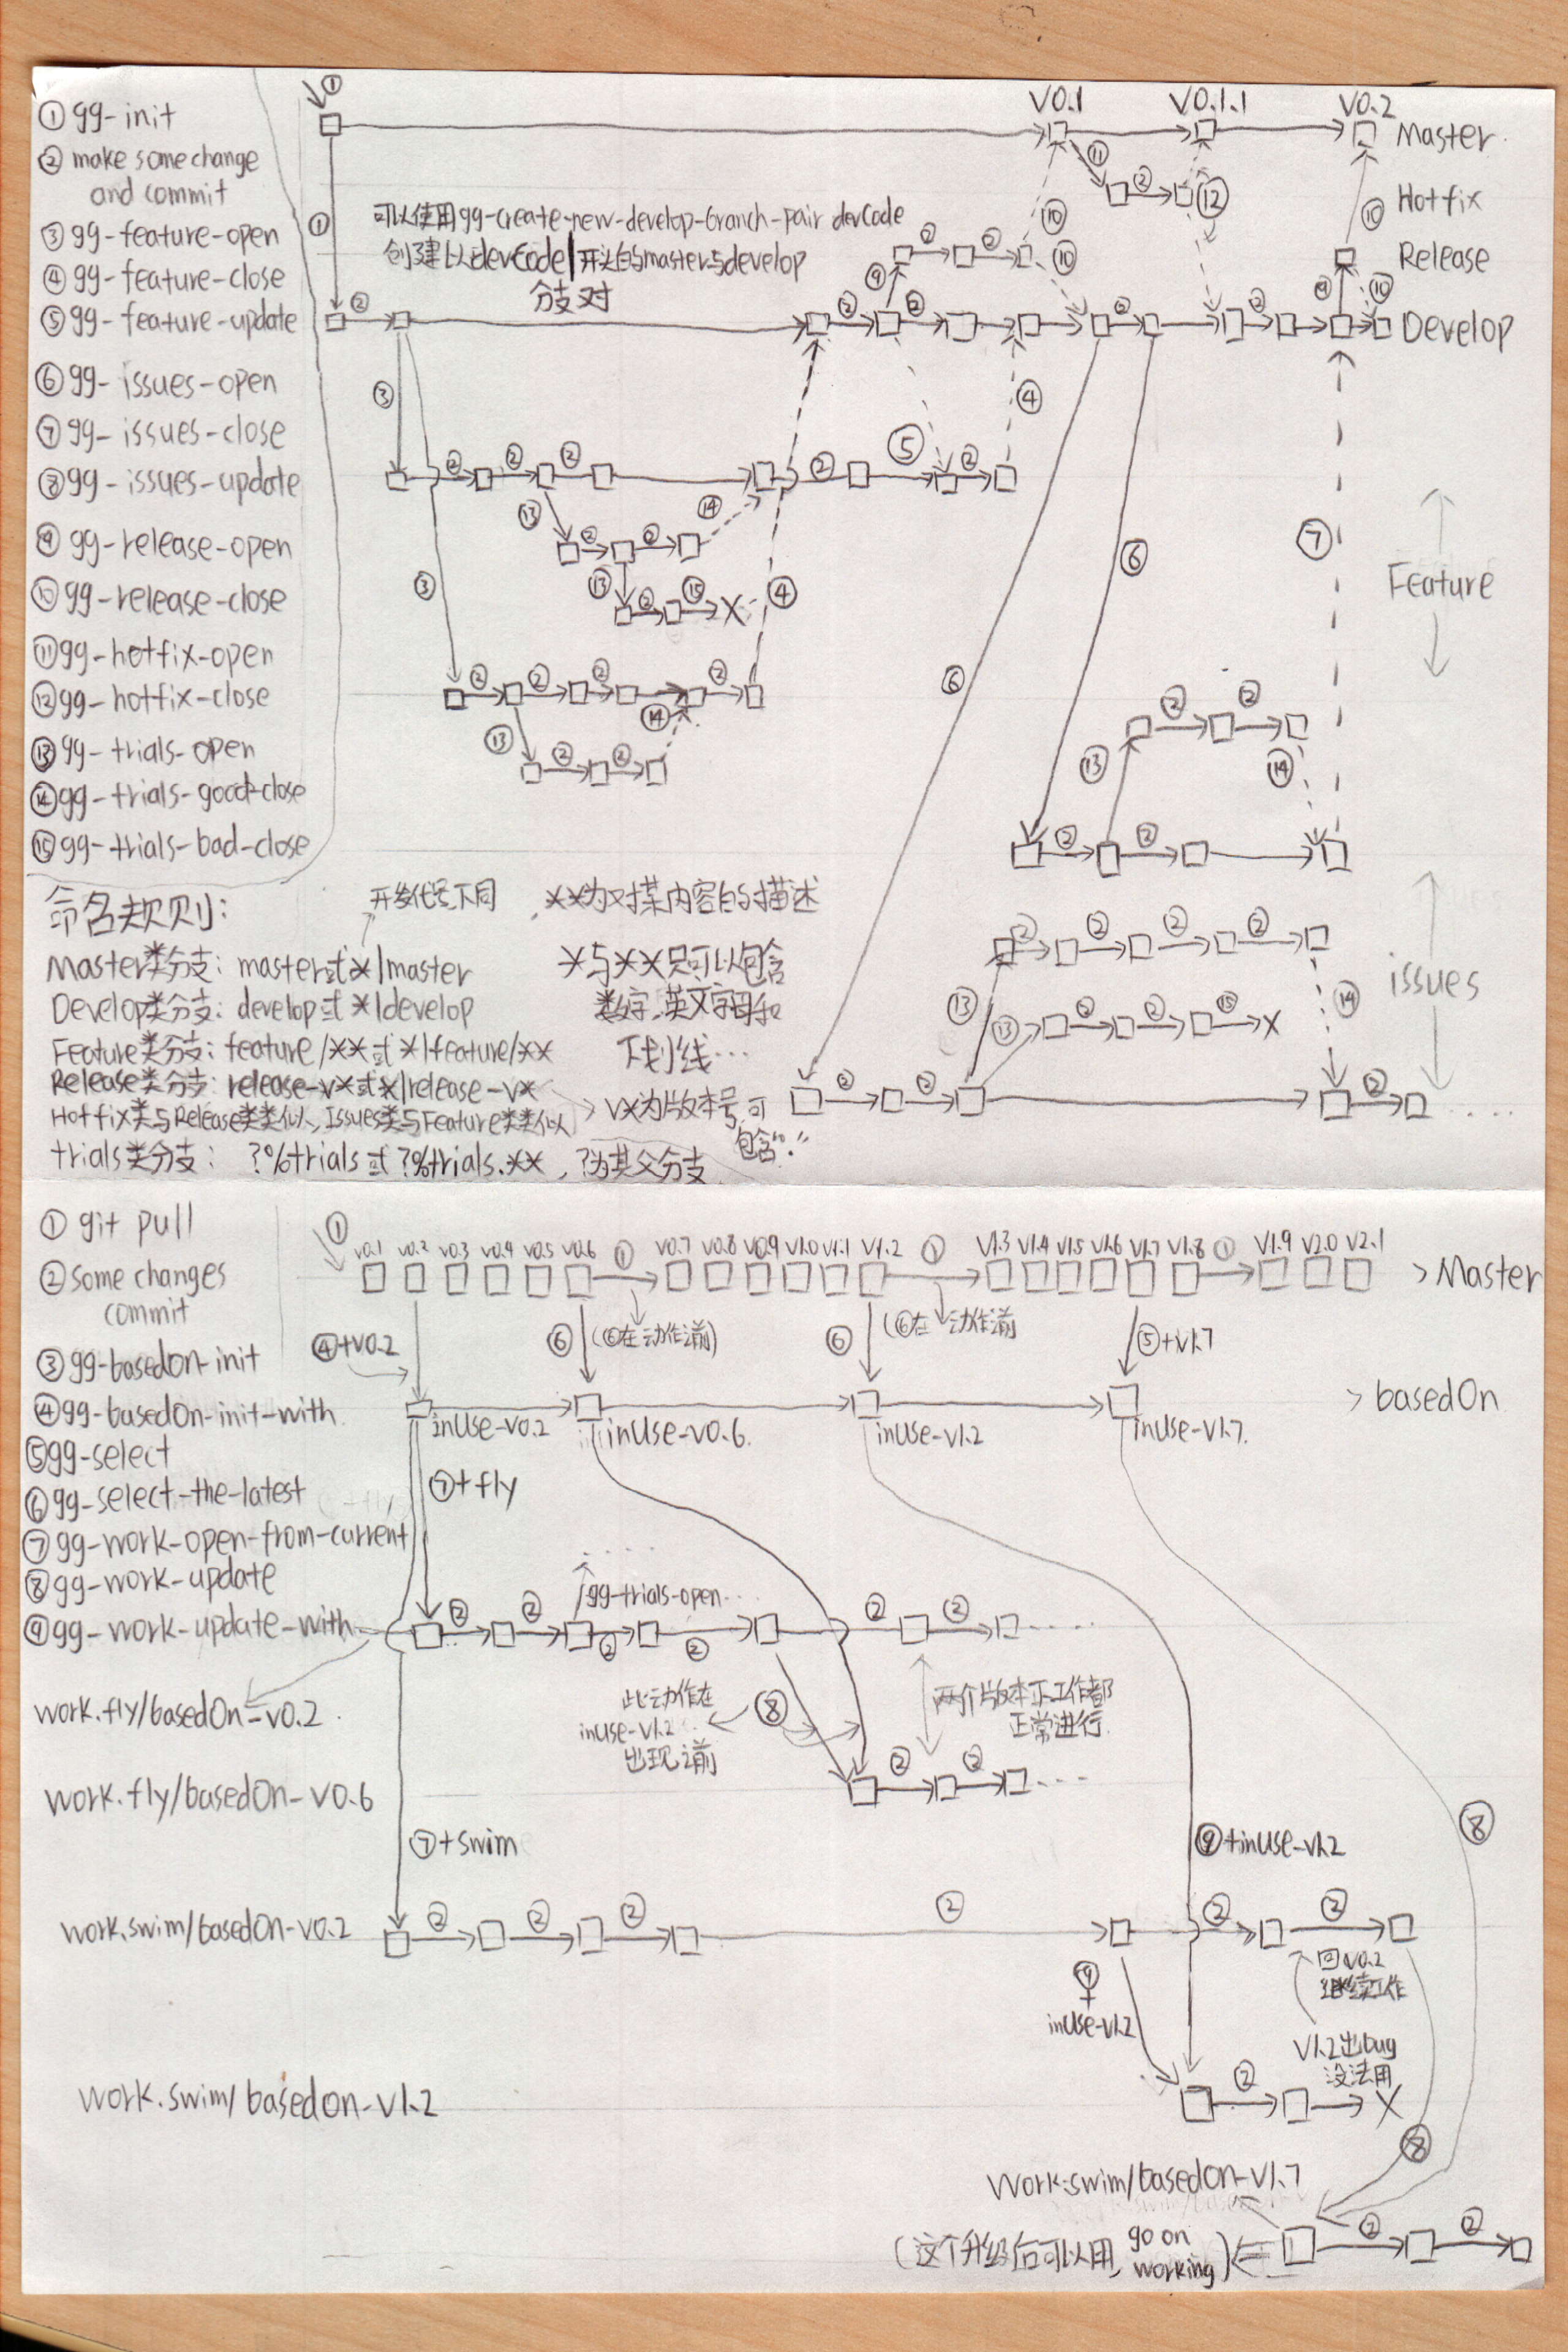 ① gg-init
② make some change
and commit
③ gg-feature-open
④ gg-feature-close
⑤ gg-feature-update
⑥ gg-issues-open
⑦ gg-issues-close
⑧ gg-issues-update
⑨ gg-release-open
⑩ gg-release-close
⑪ gg-hotfix-open
⑫ gg-hotfix-close
⑬ gg-trials-open
⑭ gg-trials-good-close
⑮ gg-trials-bad-close
V0.1 V0.1.1 V0.2
Master
Hotfix
Release
Develop
Feature
issues
可以使用gg-create-new-develop-branch-pair devCode
创建以devCode|开头的master与develop
分支对
命名规则:
开发代号不同
Master类分支: master或*|master
Develop类分支: develop或*|develop
Feature类分支: feature/**或*|feature/**
Release类分支: release-v*或*|release-v*
Hotfix类与Release类类似, Issues类与Feature类类似
trials类分支: ?%trials或?%trials.**, ?为其父分支
**为对某内容的描述
*与**只可以包含
数字,英文字母和
下划线...
v*为版本号,可
包含"."
① git pull
② some changes
commit
③ gg-basedOn-init
④ gg-basedOn-init-with
⑤ gg-select
⑥ gg-select-the-latest
⑦ gg-work-open-from-current
⑧ gg-work-update
⑨ gg-work-update-with
v0.1 v0.2 v0.3 v0.4 v0.5 v0.6 ① v0.7 v0.8 v0.9 v1.0 v1.1 v1.2 ① v1.3 v1.4 v1.5 v1.6 v1.7 v1.8 ① v1.9 v2.0 v2.1
> Master
④+v0.2
⑥ (⑥在①动作之前)
⑥ (⑥在①动作之前
⑤+v1.7
> basedOn
inUse-v0.2 inUse-v0.6. inUse-v1.2 inUse-v1.7.
⑦+fly
gg-trials-open...
work.fly/basedOn-v0.2
此动作在
inUse-v1.2
出现之前
两个版本下工作都
正常进行.
work.fly/basedOn-v0.6
⑦+swim
⑨+inUse-v1.2
work.swim/basedOn-v0.2
⑨
+
inUse-v1.2
回v0.2
继续工作
V1.2出bug
没法用
work.swim/basedOn-v1.2
work.swim/basedOn-v1.7
(这个升级后可以用, go on
working)